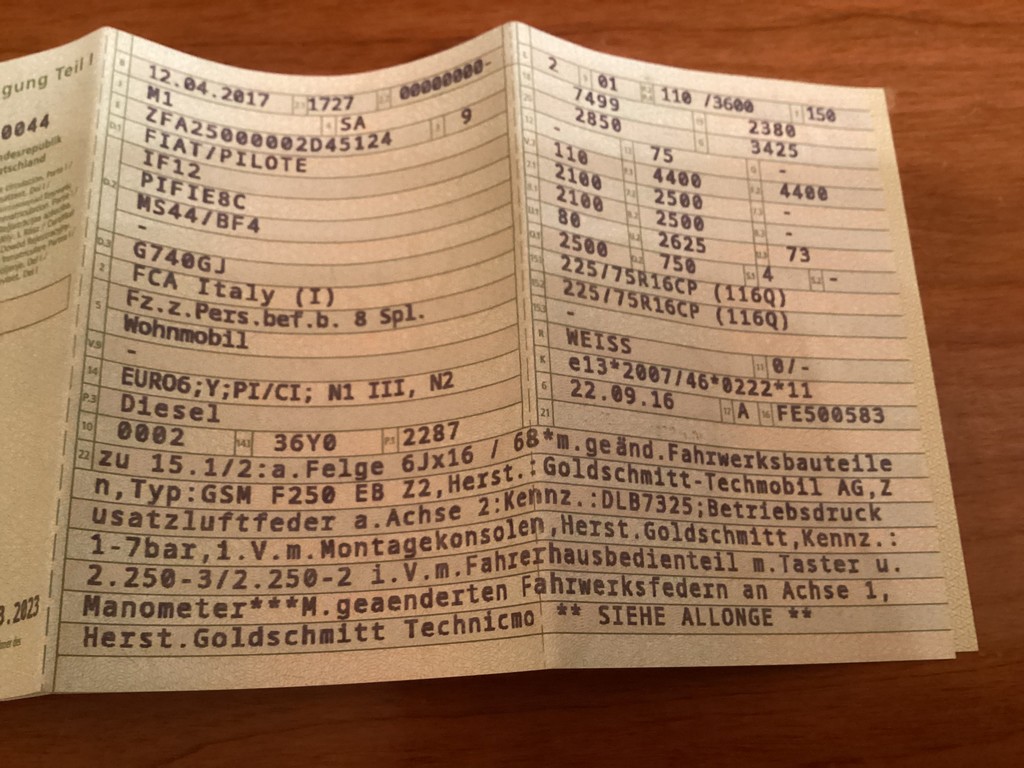 gung Teil I
0044
ndesrepublik
rtschland
3.2023
B 12.04.2017 2.1 1727 2.2 00000000-
J M1 4 SA
E ZFA25000002D45124 3 9
D.1 FIAT/PILOTE
IF12
D.2 PIFIE8C
MS44/BF4
-
D.3 G740GJ
2 FCA Italy (I)
5 Fz.z.Pers.bef.b. 8 Spl.
Wohnmobil
V.9 -
14 EURO6;Y;PI/CI; N1 III, N2
P.3 Diesel
10 0002 14.1 36Y0 P.1 2287
L 2 9 01 P.2 P.4 110 /3600 T 150
18 7499 19 2380
20 2850 G 3425
12 - 13 75 Q -
V.7 110 F.1 4400 F.2 4400
7.1 2100 7.2 2500 7.3 -
8.1 2100 8.2 2500 8.3 -
U.1 80 U.2 2625 U.3 73
O.1 2500 O.2 750 S.1 4 S.2 -
15.1 225/75R16CP (116Q)
15.2 225/75R16CP (116Q)
15.3 -
R WEISS 11 0/-
K e13*2007/46*0222*11
6 22.09.16 17 A 16 FE500583
21
22 zu 15.1/2:a.Felge 6Jx16 / 68*m.geänd.Fahrwerksbauteile
n,Typ:GSM F250 EB Z2,Herst.:Goldschmitt-Techmobil AG,Z
usatzluftfeder a.Achse 2:Kennz.:DLB7325;Betriebsdruck
1-7bar,i.V.m.Montagekonsolen,Herst.Goldschmitt,Kennz.:
2.250-3/2.250-2 i.V.m.Fahrerhausbedienteil m.Taster u.
Manometer***M.geaenderten Fahrwerksfedern an Achse 1,
Herst.Goldschmitt Technicmo ** SIEHE ALLONGE **